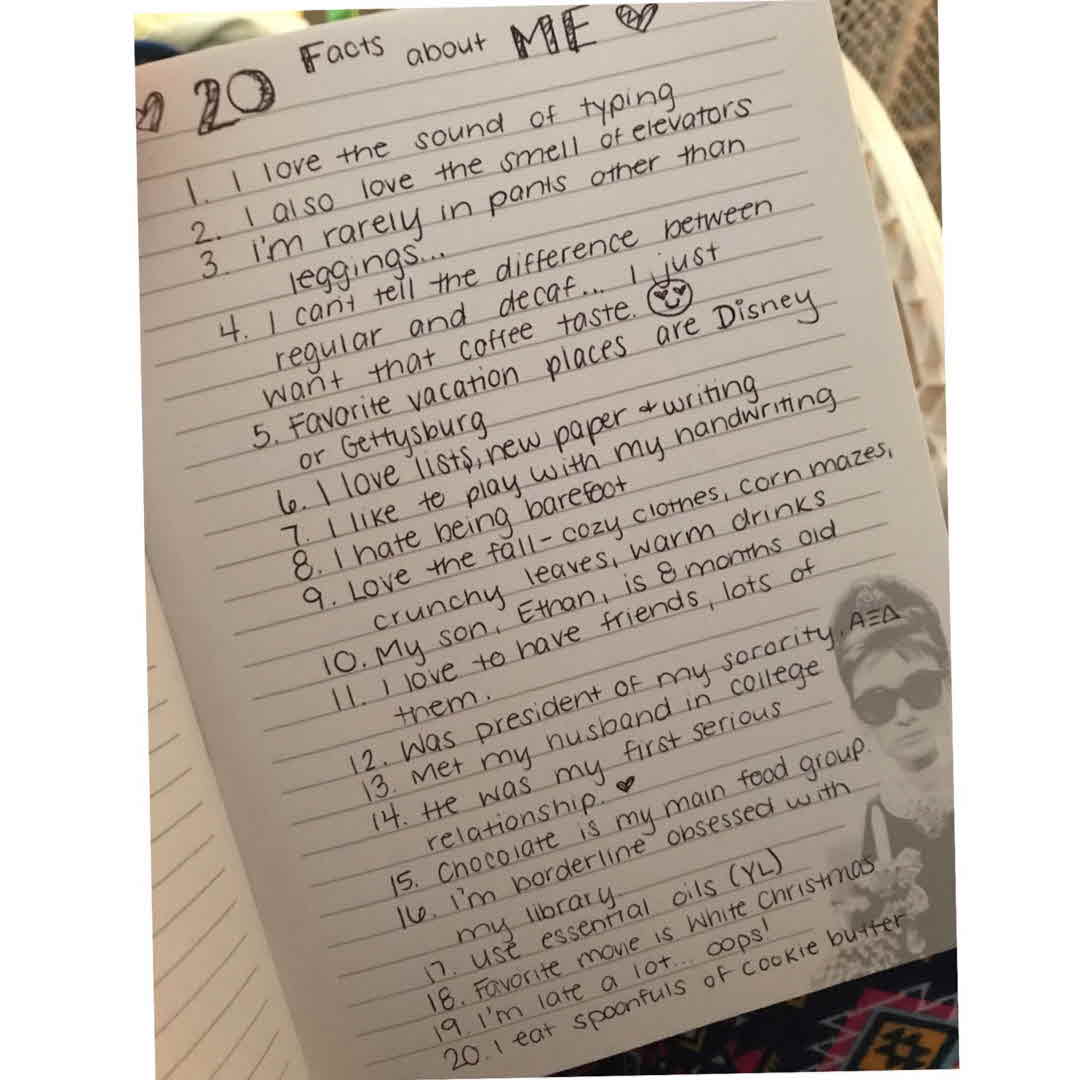 20 Facts about ME
1. I love the sound of typing
2. I also love the smell of elevators
3. I'm rarely in pants other than
leggings...
4. I can't tell the difference between
regular and decaf... I just
want that coffee taste.
5. Favorite vacation places are Disney
or Gettysburg
6. I love lists, new paper & writing
7. I like to play with my handwriting
8. I hate being barefoot
9. Love the fall - cozy clothes, corn mazes,
crunchy leaves, warm drinks
10. My son, Ethan, is 8 months old
11. I love to have friends, lots of
them.
12. Was president of my sorority, ΑΞΔ
13. Met my husband in college
14. He was my first serious
relationship.
15. Chocolate is my main food group.
16. I'm borderline obsessed with
my library.
17. Use essential oils (YL)
18. Favorite movie is White Christmas
19. I'm late a lot... oops!
20. I eat spoonfuls of cookie butter